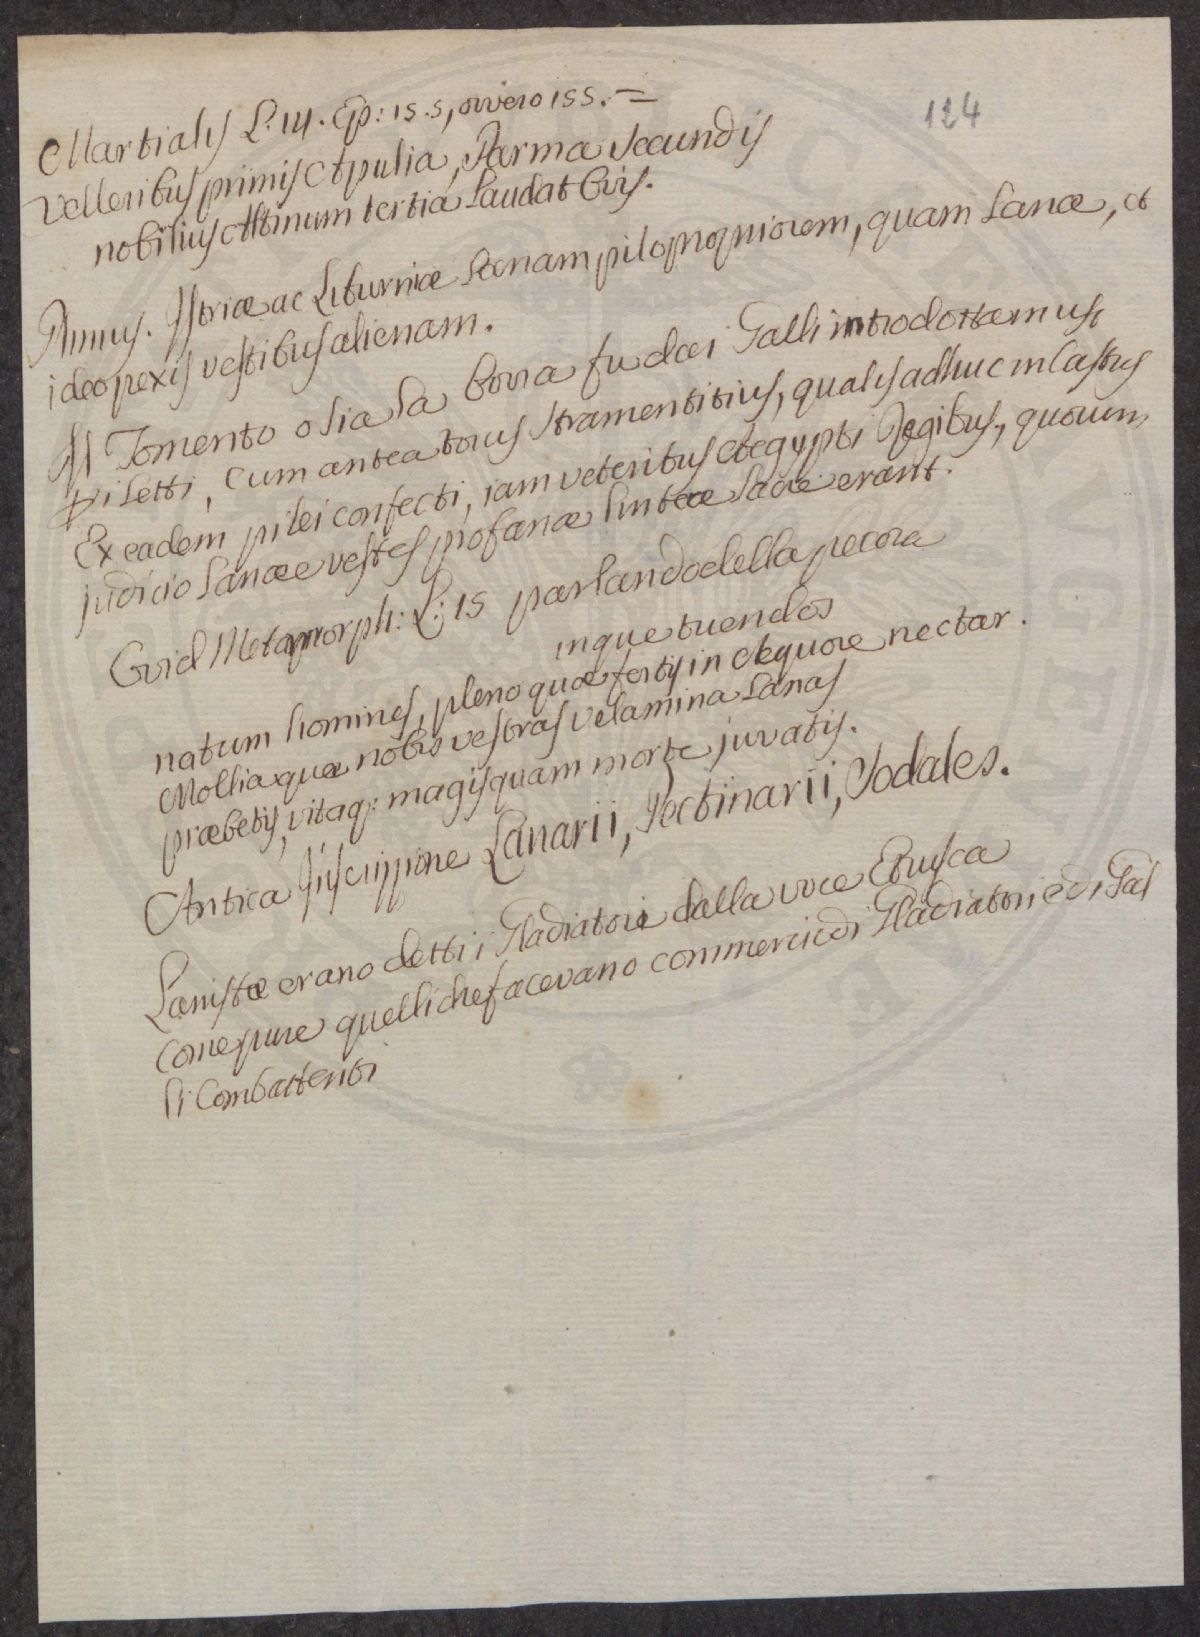 124
Martialis L: 14. Ep: 15.5, ovvero 155. =
Velleribus primis Apulia, Parma secundis
nobilius Altinum tertia laudat Ovis.
Plinius. Istriæ ac Liburniæ lanam pilo propriorem, quam lanæ, et
ideo pexis vestibus alienam.
Il Tomento o sia la borra fu dai Galli introdotta m usi
piletti, cum antea torus stramentitius, qualis adhuc in Castris
Ex eadem pilei confecti, iam veteribus Aegypti Regibus, quorum
judicio lanææ vestes profanæ linteæ sacræ erant.
Ovid Metamorph: L: 15 parlando della pecora
inque tuendos
natum homines, pleno quæ fertis in Aequore nectar.
Mollia quæ nobis vestras velamina lanas
præbetis, vitaq: magis quam morte juvatis.
Antica Inscrippione Lanarii, Pectinarii, Sodales.
Lanistæ erano detti i Gladiatori dalla voce Etrusca
Come pure quelli che facevano commercio di Gladiatori e di Gal
li Combattenti